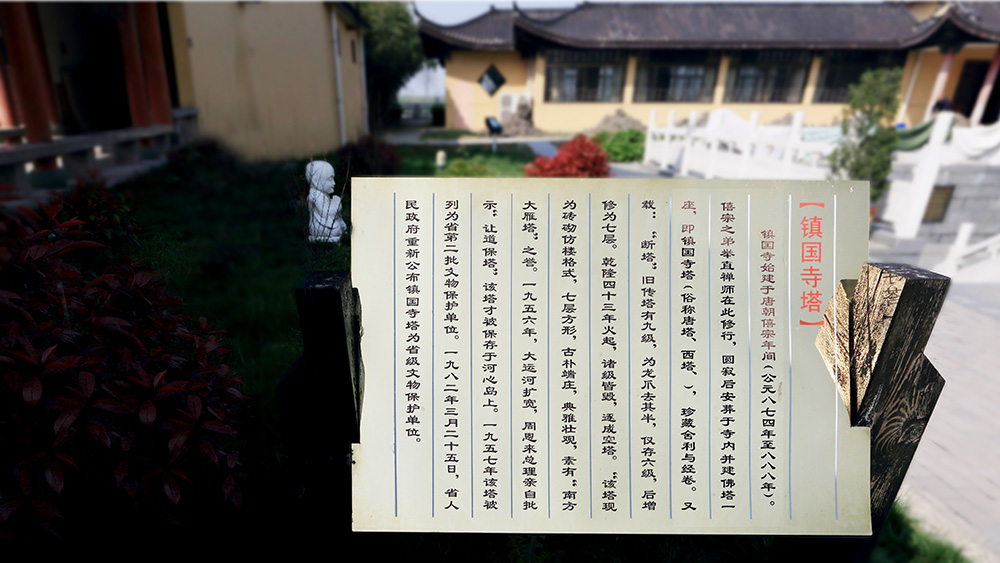 【镇国寺塔】
镇国寺始建于唐朝僖宗年间（公元八七四年至八八八年）。
僖宗之弟举直禅师在此修行，圆寂后安葬于寺内并建佛塔一
座，即镇国寺塔（俗称唐塔、西塔、），珍藏舍利与经卷。又
载：“断塔”旧传塔有九级，为龙爪去其半，仅存六级，后增
修为七层。乾隆四十三年火起，诸级皆毁，遂成空塔。“该塔现
为砖砌仿楼格式，七层方形，古朴端庄，典雅壮观，素有“南方
大雁塔”之誉。一九五六年，大运河扩宽，周恩来总理亲自批
示“让道保塔”该塔才被保存于河心岛上。一九五七年该塔被
列为省第二批文物保护单位。一九八二年三月二十五日，省人
民政府重新公布镇国寺塔为省级文物保护单位。